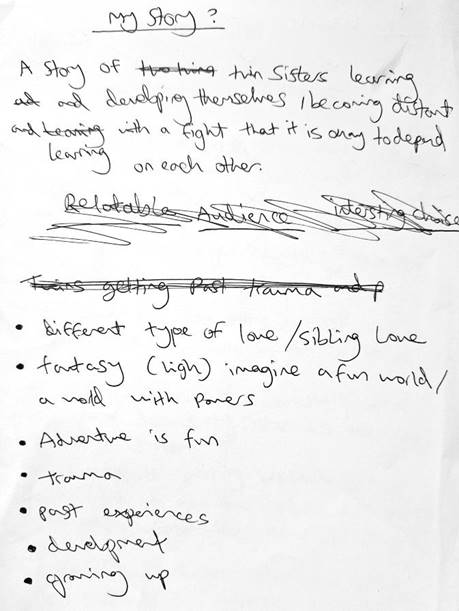 My Story ?
A Story of two living twin Sisters learning
and developing themselves / becoming distant
and Learning with a fight that it is okay to depend
learning
on each other.
Relatable Audience intersting choise
Twins getting Past trauma and p
• Different type of love / Sibling Love
• fantasy (high) imagine a fun world /
a world with Powers
• Adventure is fun
• trauma
• past experiences
• development
• growing up